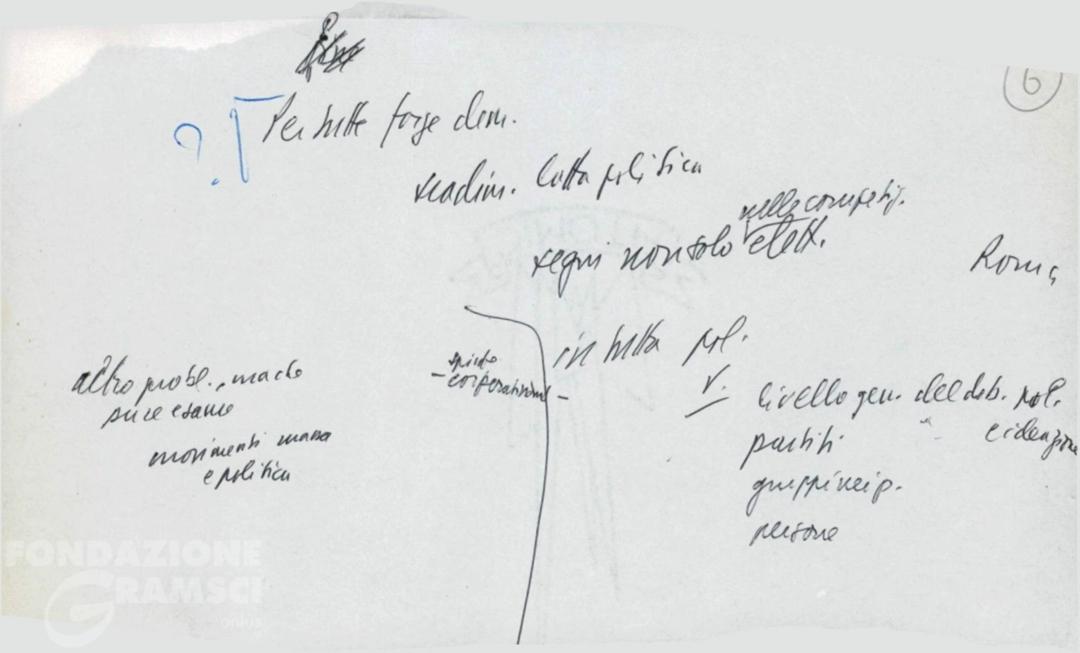 6
?
Per tutte forze dem.
scadim. lotta politica
nelle competiz.
segni non solo elett.
Roma
in tutta pol.
spinte
- corporativismi -
altro probl., ma da
pure esame
movimenti massa
e politica
v. livello gen. del dib. pol.
partiti
gruppi
persone
FONDAZIONE
GRAMSCI
onlus